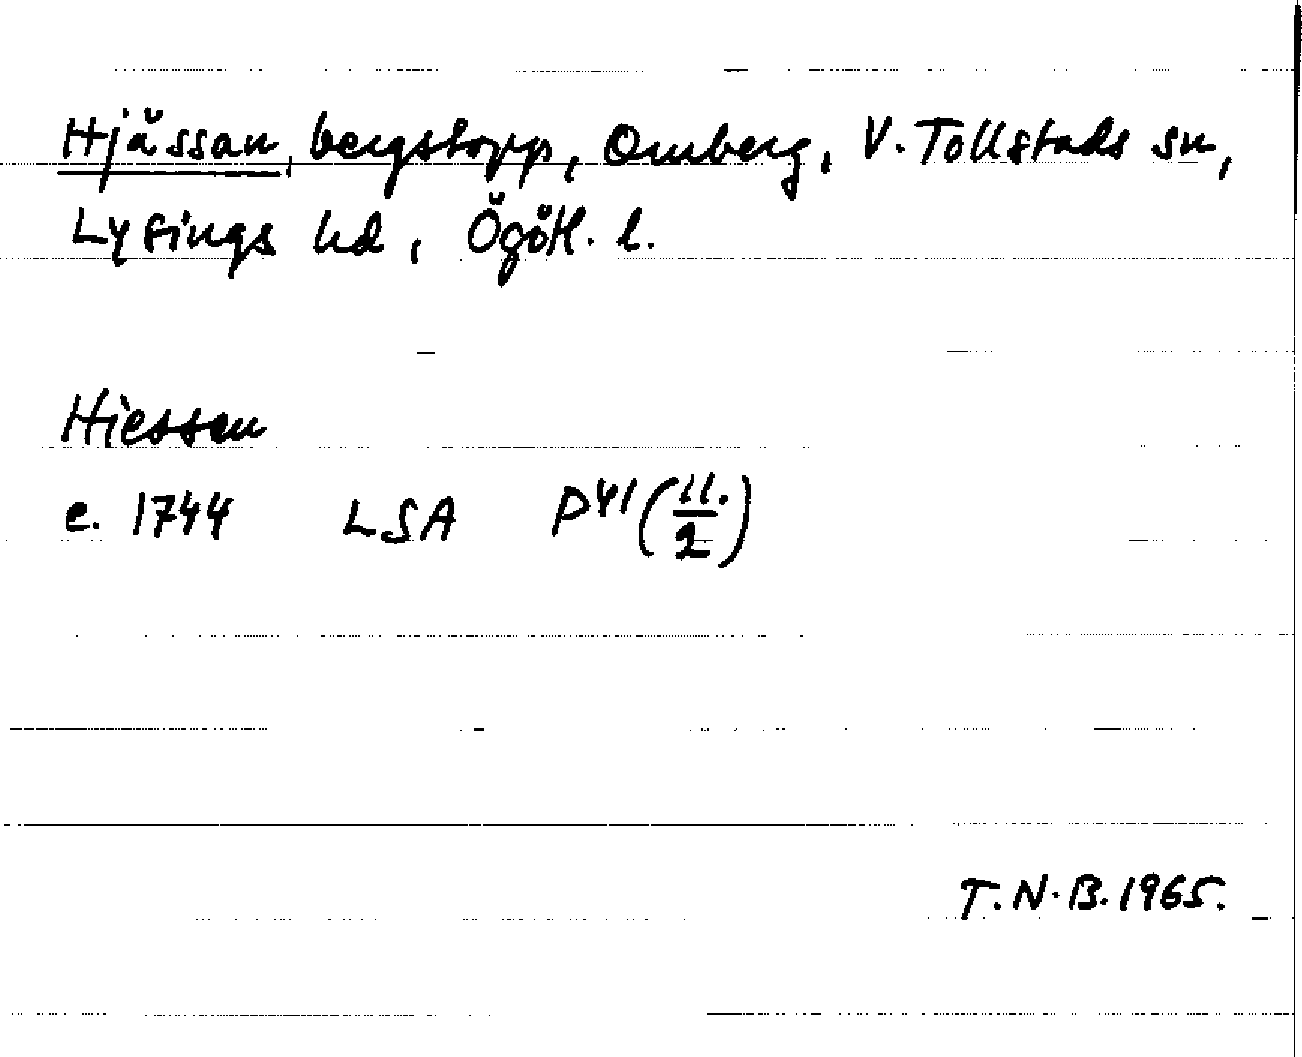 Hjässan, bergstopp, Omberg, V. Tollstads sn,
Lysings hd, Ögötl. l.
Hiessan
c. 1744 LSA P41 (11./2)
T.N.B. 1965.